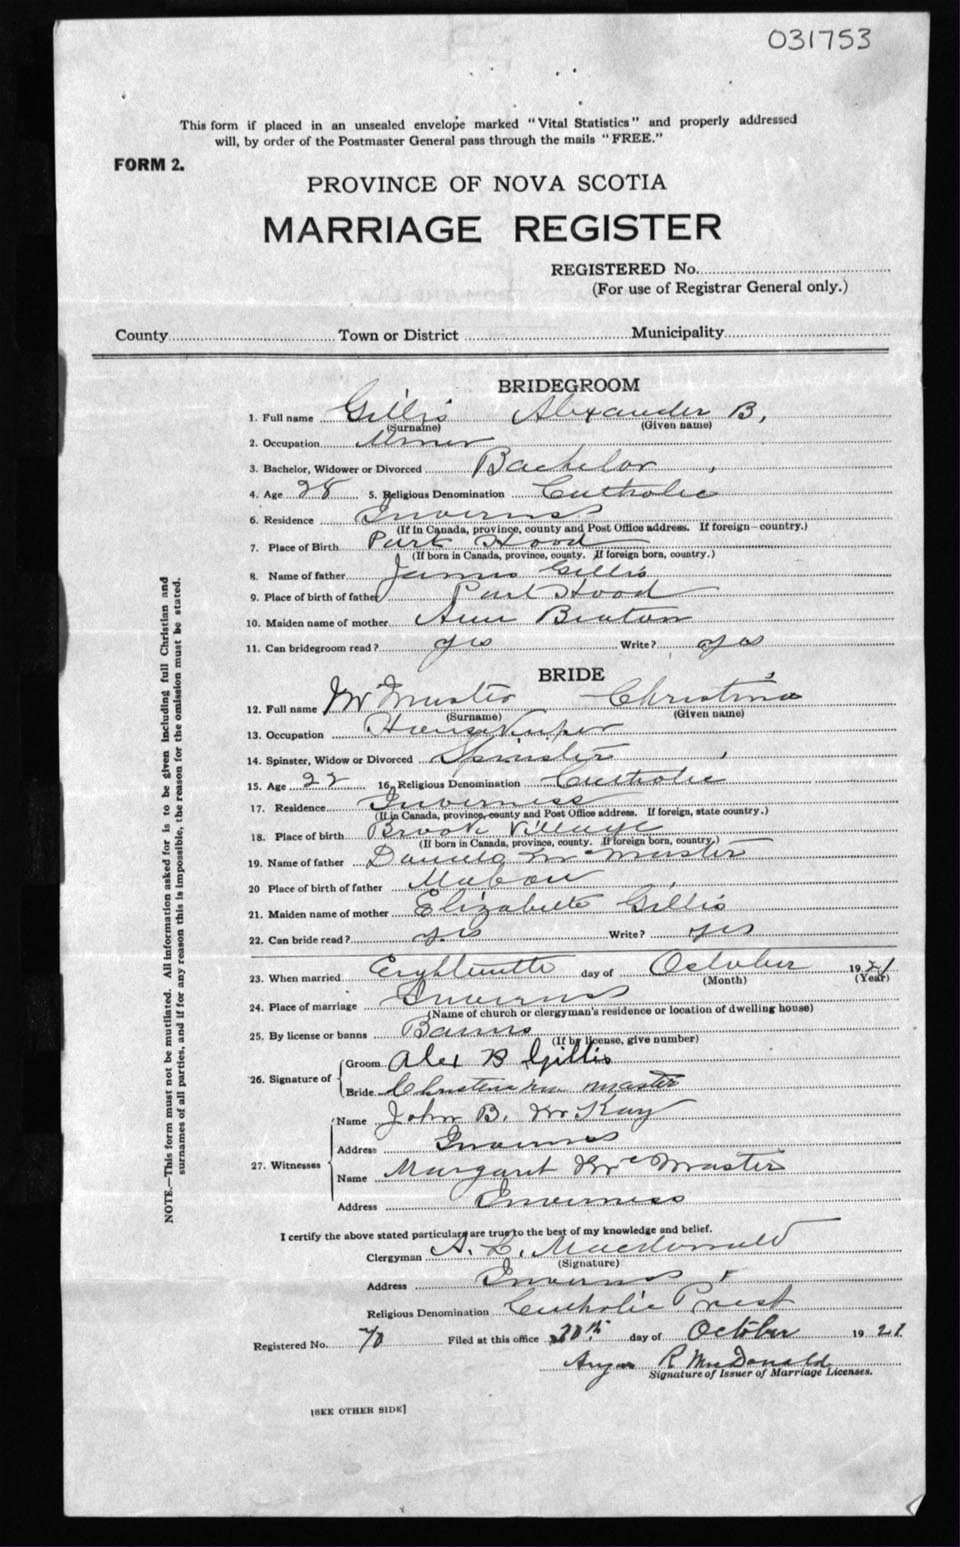 031753
This form if placed in an unsealed envelope marked "Vital Statistics" and properly addressed
will, by order of the Postmaster General pass through the mails "FREE."
FORM 2.
PROVINCE OF NOVA SCOTIA
MARRIAGE REGISTER
REGISTERED No.
(For use of Registrar General only.)
County Town or District Municipality
BRIDEGROOM
1. Full name Gillis Alexander B.
(Surname) (Given name)
2. Occupation Miner
3. Bachelor, Widower or Divorced Bachelor
4. Age 28 5. Religious Denomination Catholic
6. Residence Inverness
(If in Canada, province, county and Post Office address. If foreign—country.)
7. Place of Birth Port Hood
(If born in Canada, province, county. If foreign born, country.)
8. Name of father James Gillis
9. Place of birth of father Port Hood
10. Maiden name of mother Ann Beaton
11. Can bridegroom read? yes Write? yes
BRIDE
12. Full name McMaster Christina
(Surname) (Given name)
13. Occupation Housekeeper
14. Spinster, Widow or Divorced Spinster
15. Age 22 16. Religious Denomination Catholic
17. Residence Inverness
(If in Canada, province, county and Post Office address. If foreign, state country.)
18. Place of birth Brook Village
(If born in Canada, province, county. If foreign born, country.)
19. Name of father McMaster
20 Place of birth of father Mabou
21. Maiden name of mother Elizabeth Gillis
22. Can bride read? yes Write? yes
23. When married Eighteenth day of October 1921
(Month) (Year)
24. Place of marriage Inverness
(Name of church or clergyman's residence or location of dwelling house)
25. By license or banns Banns
(If by license, give number)
26. Signature of
Groom Alex B Gillis
Bride Christena Mc master
27. Witnesses
Name John B. McKay
Address Inverness
Name Margaret McMaster
Address Inverness
I certify the above stated particulars are true to the best of my knowledge and belief.
Clergyman A. L. Macdonald
(Signature)
Address Inverness
Religious Denomination Catholic Priest
Registered No. 70 Filed at this office 20th day of October 1921
Angus R MacDonald
Signature of Issuer of Marriage Licenses.
[SEE OTHER SIDE]
NOTE.—This form must not be mutilated. All information asked for is to be given including full Christian and
surnames of all parties, and if for any reason this is impossible, the reason for the omission must be stated.